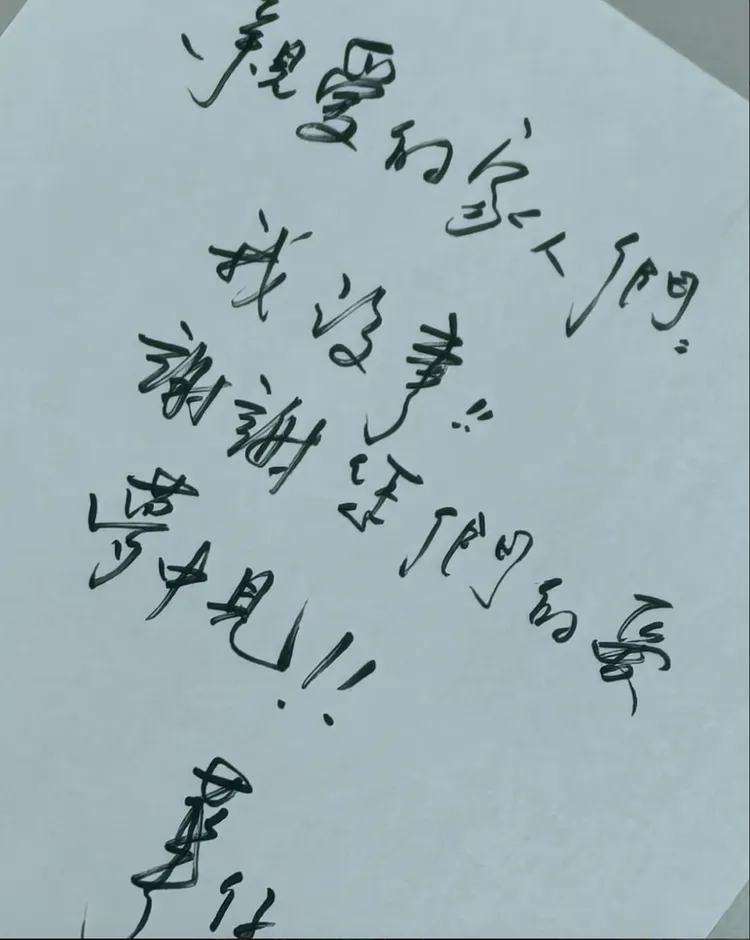 親愛的家人們:
我沒事!!
謝謝你們的愛
夢中見!!!
華仔